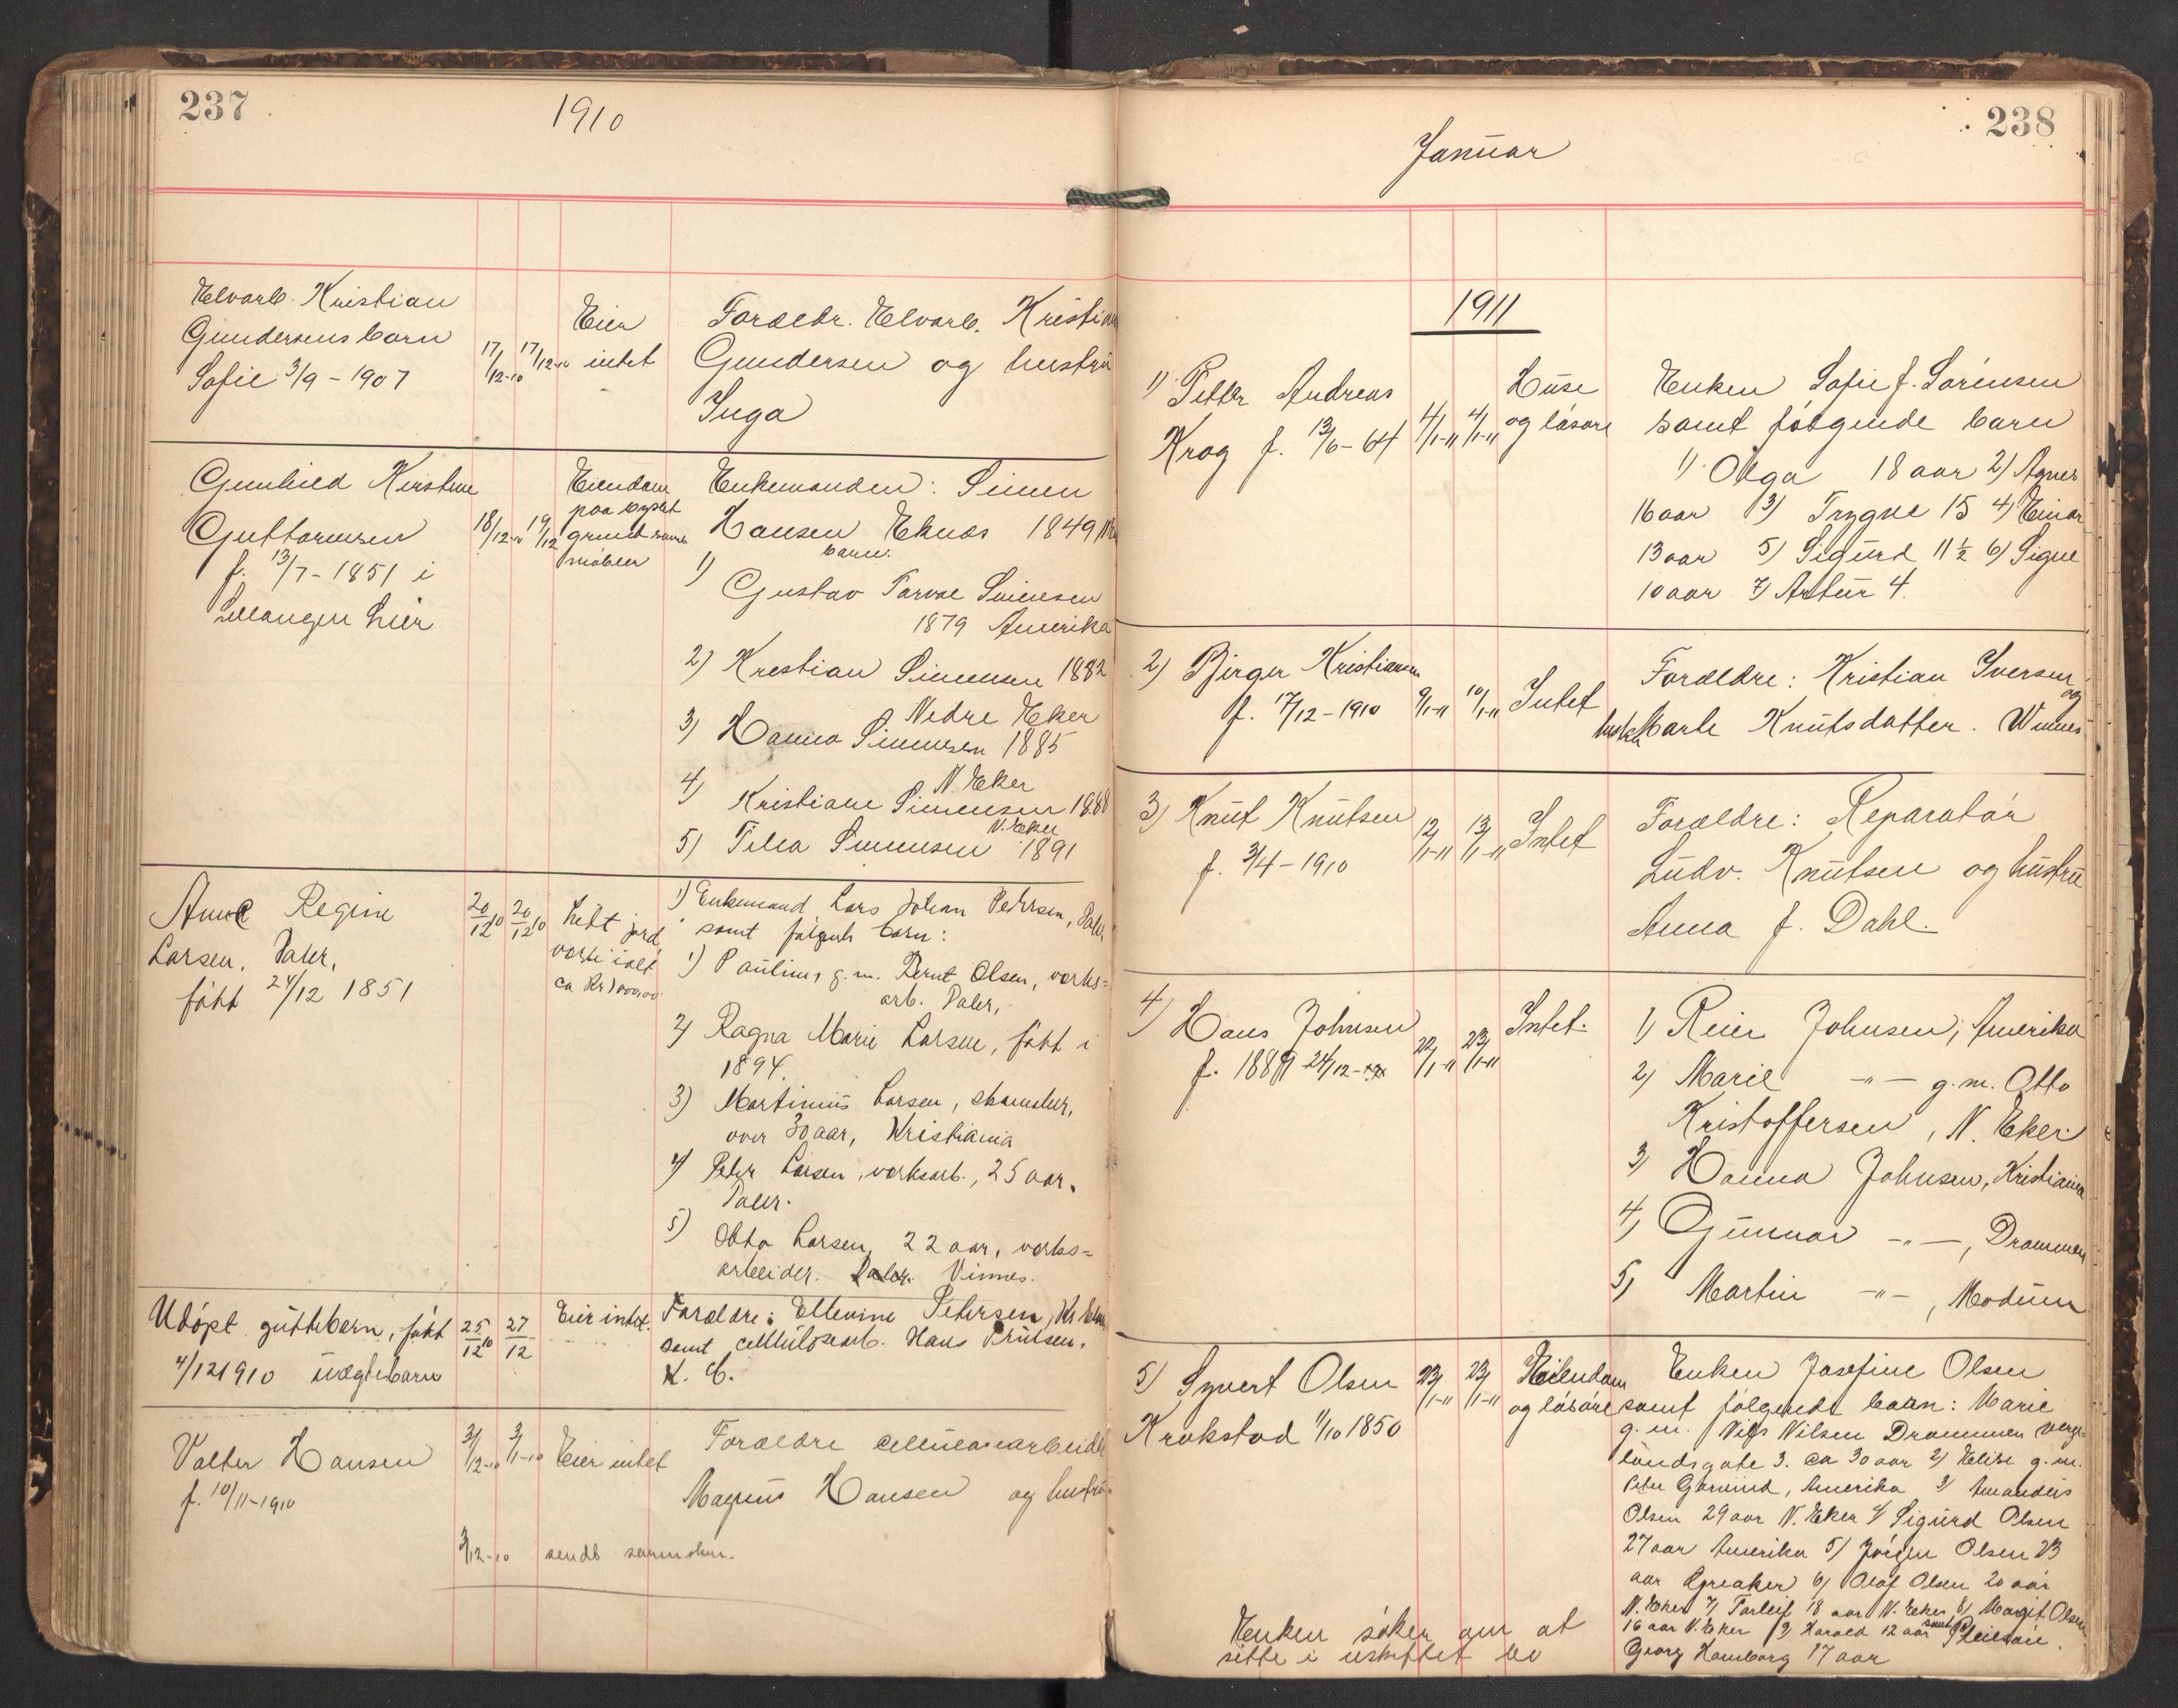 237
1910
Elvarb. Kristian
Gundersens barn
Sofie 3/9 - 1907
17/12-10
17/12-10
Eier
intet
Forældr. Elvarb. Kristian
Gundersen og hustru
Inga
Gunhild Kirstine
Guttormsen
f. 13/7 - 1851 i
Lier
18/12-10
19/12
Eiendom
paa bygslet
grund samt
møbler
Enkemanden: Simen
Hansen Eknæs 1849
barn:
1)
Gustav Torval Simensen
1879 Amerika
2) Krestian Simensen 1882
Nedre Eker
3) Hanna Simensen 1885
N. Eker
4) Kristiane Simensen 1888
N. Eker
5) Tilla Simensen 1891
Anne Regine
Larsen, Daler,
født 24/12 1851
20/12 10
20/12 10
Lidt jord,
værdi ialt
ca Kr 1000,00
1) Enkemand Lars Johan Pedersen, Daler,
samt følgende barn:
1) Pauline, g. m. Bernt Olsen, verks=
arb. Daler,
2) Ragna Marie Larsen, født i
1894.
3) Martinius Larsen, skomaker,
over 30 aar, Kristiania
4) Peder Larsen, verksarb., 25 aar,
Daler.
5)
Otto Larsen, 22 aar, verks=
arbeider. Daler. Vinnes.
Udøpt guttebarn, født
4/12 1910 uægtebarn
25/12 10
27/12
Eier intet.
Forældre: Ellevine Petersen,
samt cellulosearb. Hans Knutsen,
Valter Hansen
f. 10/11-1910
31/12-10
3/1-10
Eier intet
Forældre cellulosearbeider
Magnus Hansen og hustru
3/12-10 sendt sorenskr.
238
Januar
1911
1) Petter Andreas
Krog f. 13/6 - 64
4/1-11
4/1-11
Huse
og løsøre
Enken Sofie f. Sørensen
samt følgende barn
1) Olga 18 aar 2) Agnes
16 aar 3) Trygve 15 4) Einar
13 aar 5) Sigurd 11½ 6) Signe
10 aar 7) Artur 4.
2) Birger Kristiansen
f. 17/12 - 1910
9/1-11
10/1-11
Intet
Forældre: Kristian Iversen
og
hustru Marte Knutsdatter. Winnes
3) Knut Knutsen
f. 3/4 - 1910
12/1-11
13/1-11
Intet
Forældre: Reparatør
Ludv. Knutsen og hustru
Anna f. Dahl.
4) Hans Johnsen
f. 1889 24/12
22/1-11
23/1-11
Intet.
1) Reier Johnsen, Amerika
2) Marie -"- g. m. Otto
Kristoffersen, N. Eker
3) Hanna Johnsen, Kristiania
4) Gunnar -"-, Drammen
5) Martin -"-, Modum
5) Syvert Olsen
Krokstad 1/10 1850
23/1-11
23/1-11
Eiendom
og løsøre
Enken Josefine Olsen
samt følgende barn: Marie
g. m. Nils Nilsen Drammen
lundsgate 3. ca 30 aar 2) Elise g. m.
Peter Amerika 3) Amandus
Olsen 29 aar N. Eker 4) Sigurd Olsen
27 aar Amerika 5) Jørgen Olsen 23
aar Greaker 6) Olaf Olsen 20 aar
N. Eker 7) Torleif 18 aar N. Eker 8) Margit Olsen
16 aar N. Eker 9) Harald 12 aar samt Pleiesøn.
Georg Hamborg 17 aar
Enken søker om at
sitte i uskiftet bo